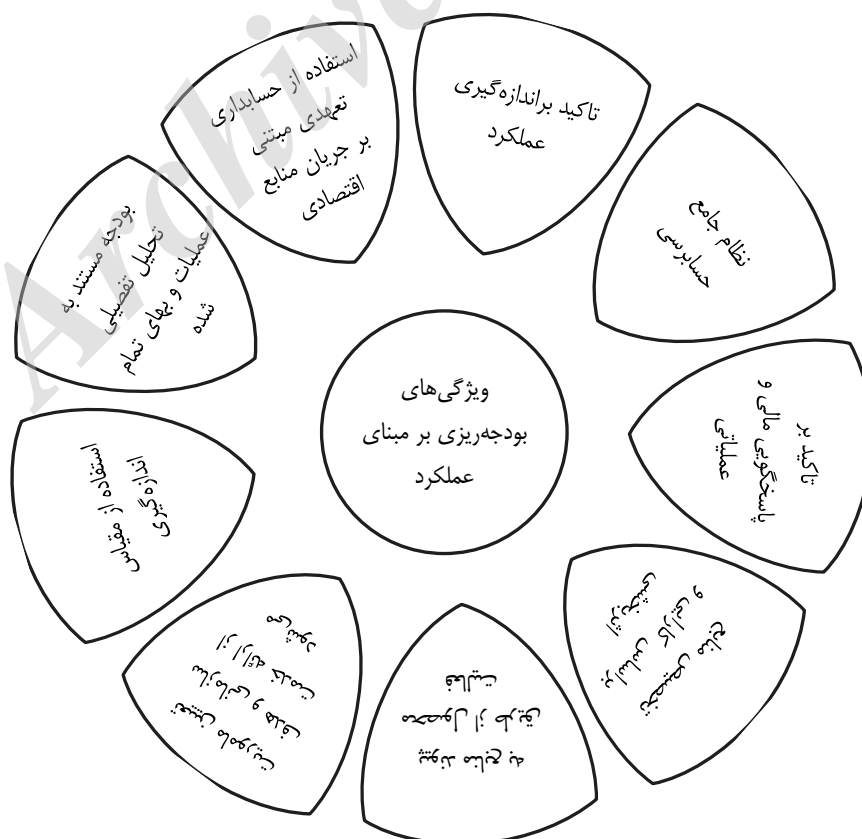 ویژگی‌های
بودجه‌ریزی بر مبنای
عملکرد
تاکید براندازه‌گیری
عملکرد
نظام جامع
حسابرسی
تاکید بر
پاسخگویی مالی و
عملیاتی
تخصیص منابع
براساس کارایی و
اثربخشی
پیوند منابع به
محصول از طریق
فعالیت
تعیین ماموریت
سازمانی و هدف
از ارائه خدمت
می شود
استفاده از مقیاس
اندازه‌گیری
بودجه مستند به
تحلیل تفصیلی
عملیات و بهای تمام
شده
استفاده از حسابداری
تعهدی مبتنی
بر جریان منابع
اقتصادی
Archive